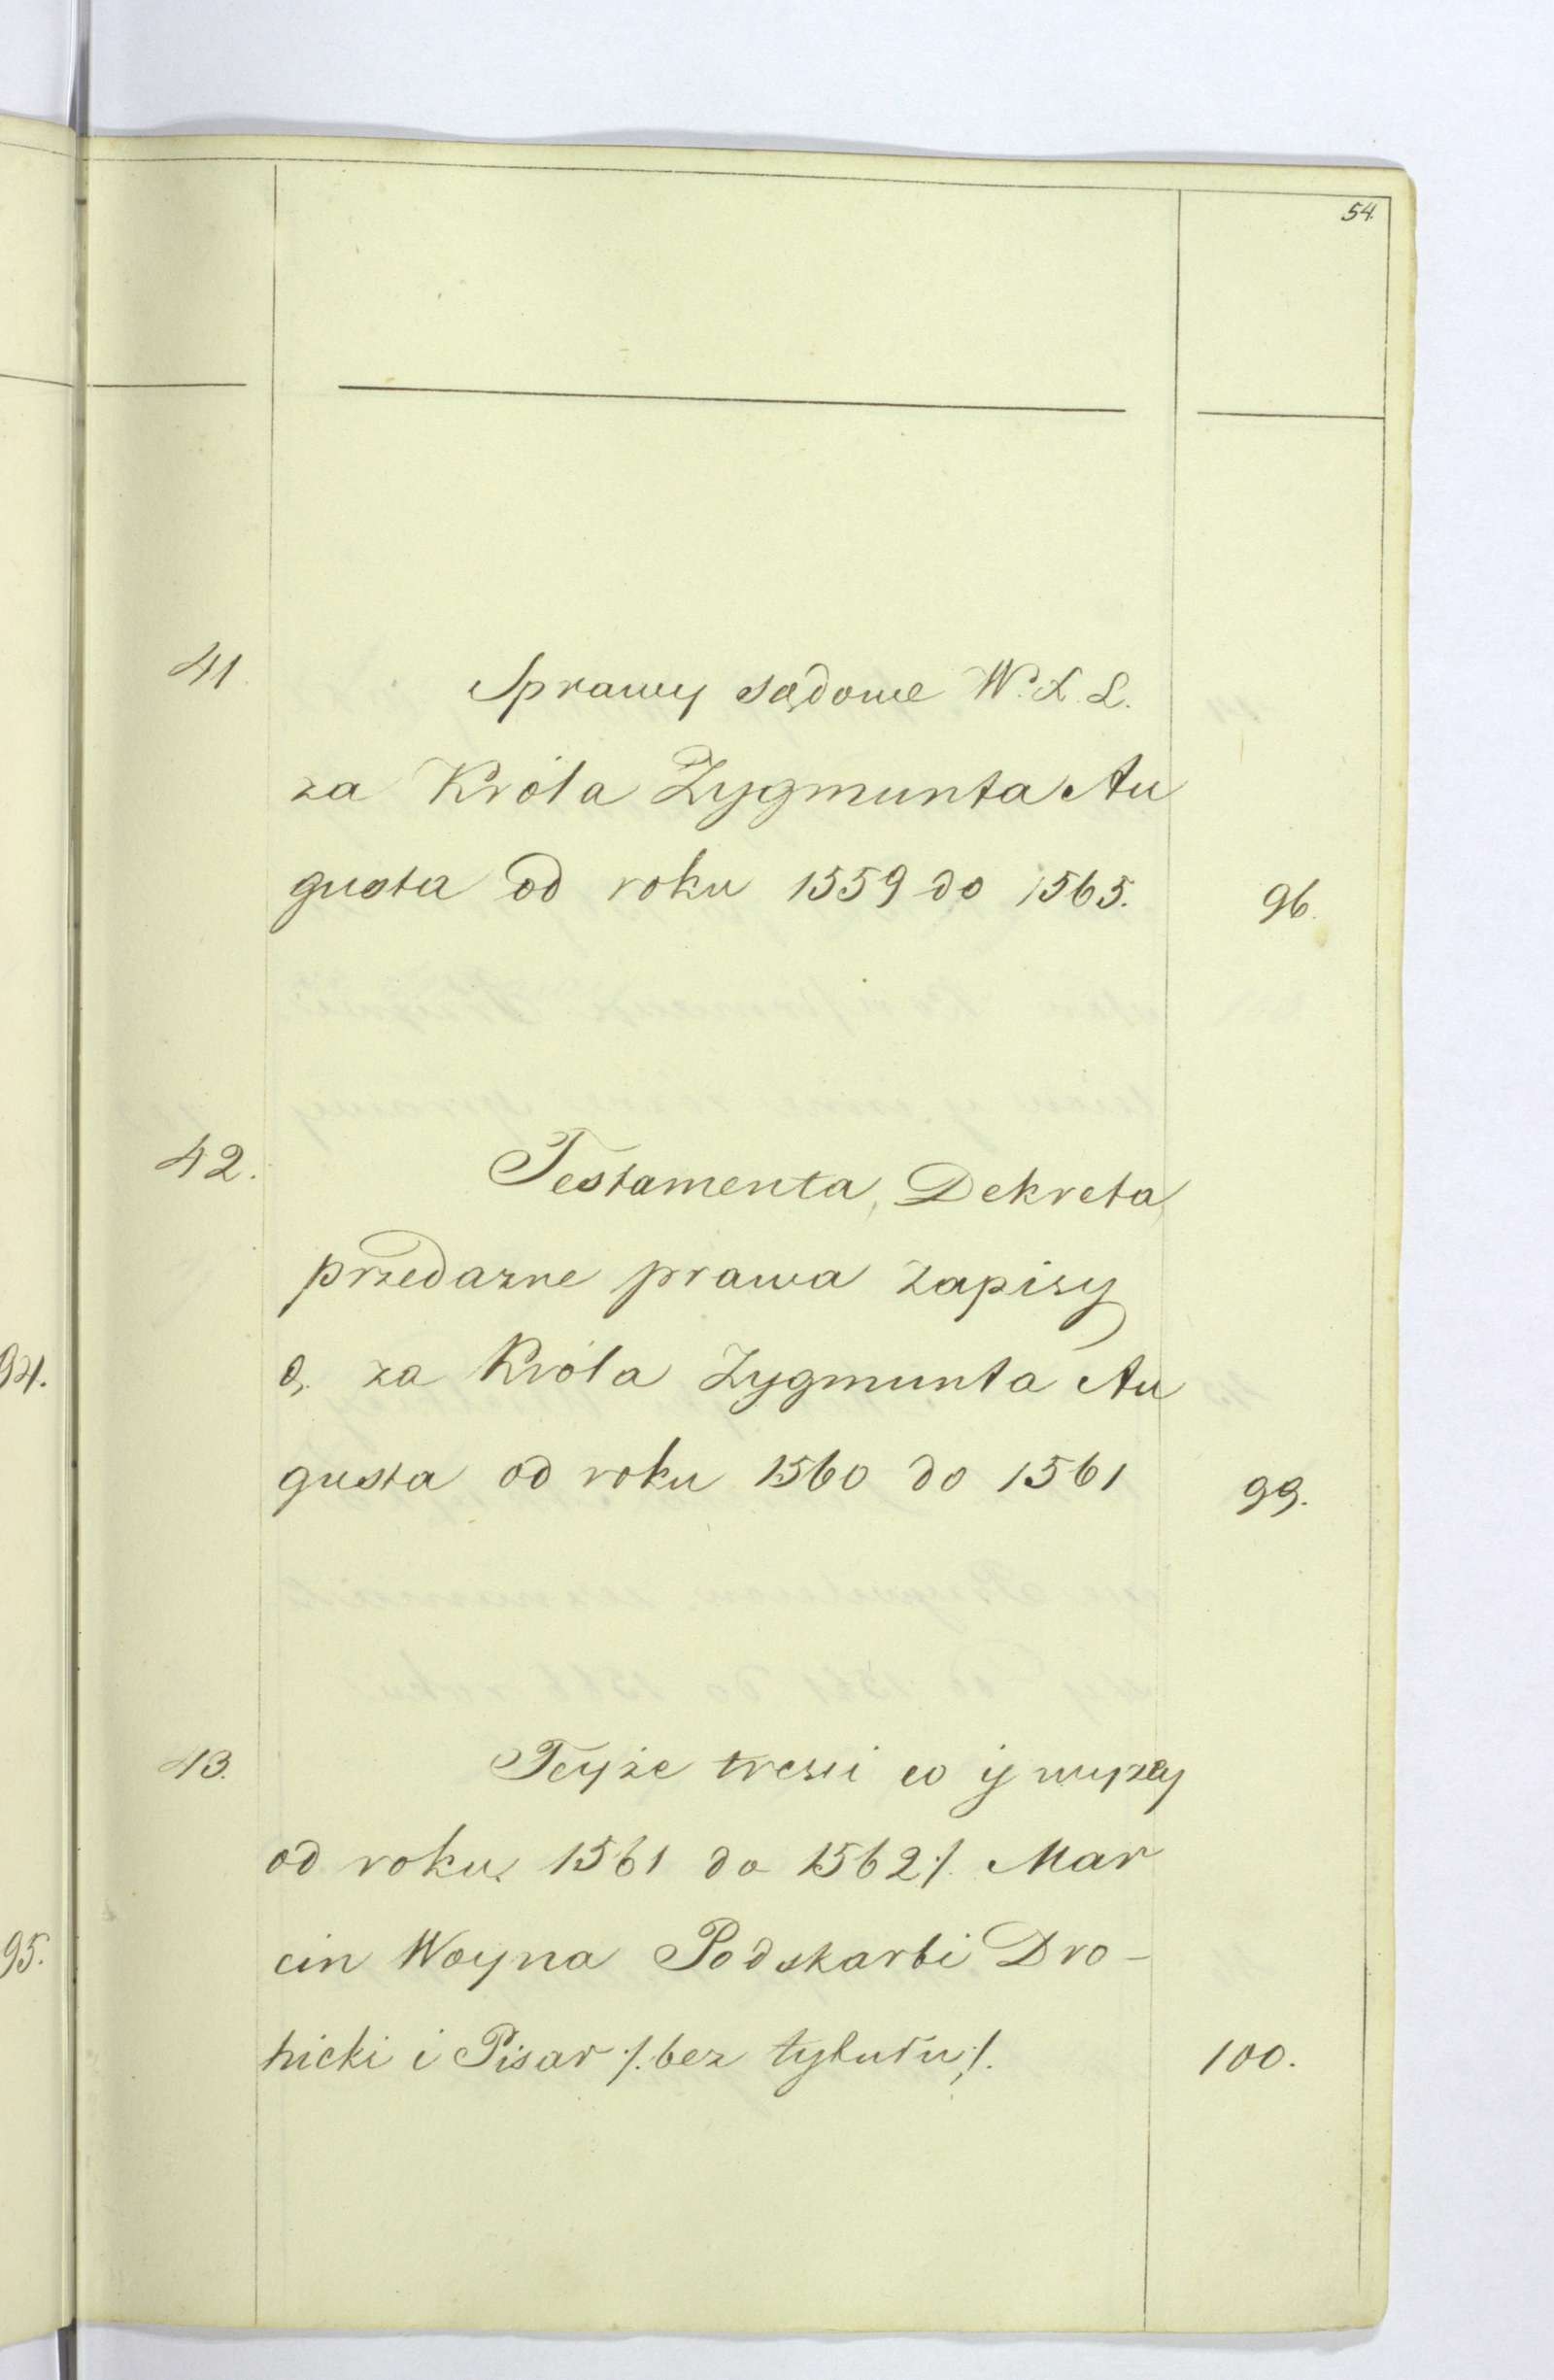 54.
41.
Sprawy sądowe W. X. L.
za Króla Zygmunta Au
gusta od roku 1559 do 1565.
96.
42.
Testamenta, Dekreta,
przedazne prawa zapisy
za Króla Zygmunta Au
gusta od roku 1560 do 1561
99.
94.
43.
Teyże tresci co ij wyzey
od roku 1561 do 1562 ⁒ Mar
cin Woyna Podskarbi Dro-
hicki i Pisar ⁒ bez tytułu ⁒
100.
95.